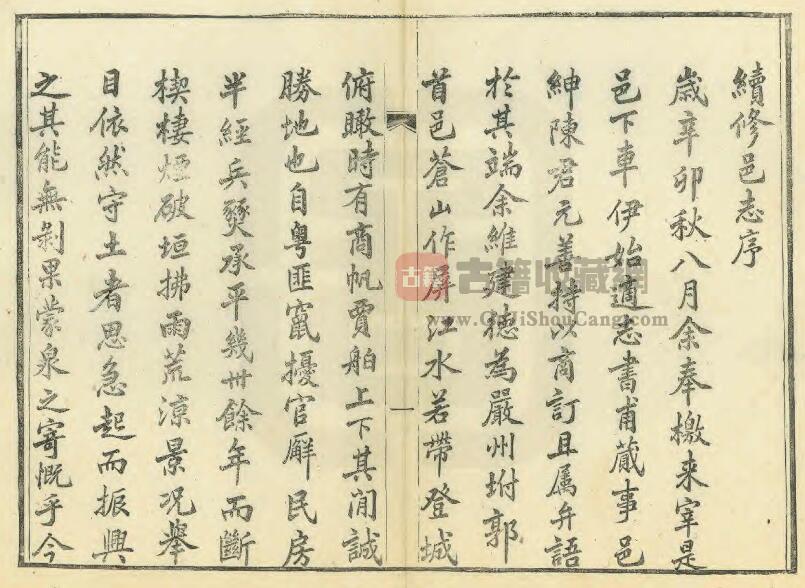 續修邑志序
歲辛卯秋八月余奉檄来宰是
邑下車伊始適志書甫蕆事邑
紳陳君元善持以商訂且属弁語
於其端余維建德為嚴州坿郭
首邑蒼山作屏江水若帶登城
俯瞰時有商帆賈舶上下其閒誠
勝地也自粤匪竄擾官廨民房
半經兵燹承平幾卅餘年而斷
楔棲煙破垣拂雨荒涼景况舉
目依然守土者思急起而振興
之其能無剝果蒙泉之寄慨乎今
一
古籍
古籍收藏網
www.GuJiShouCang.com